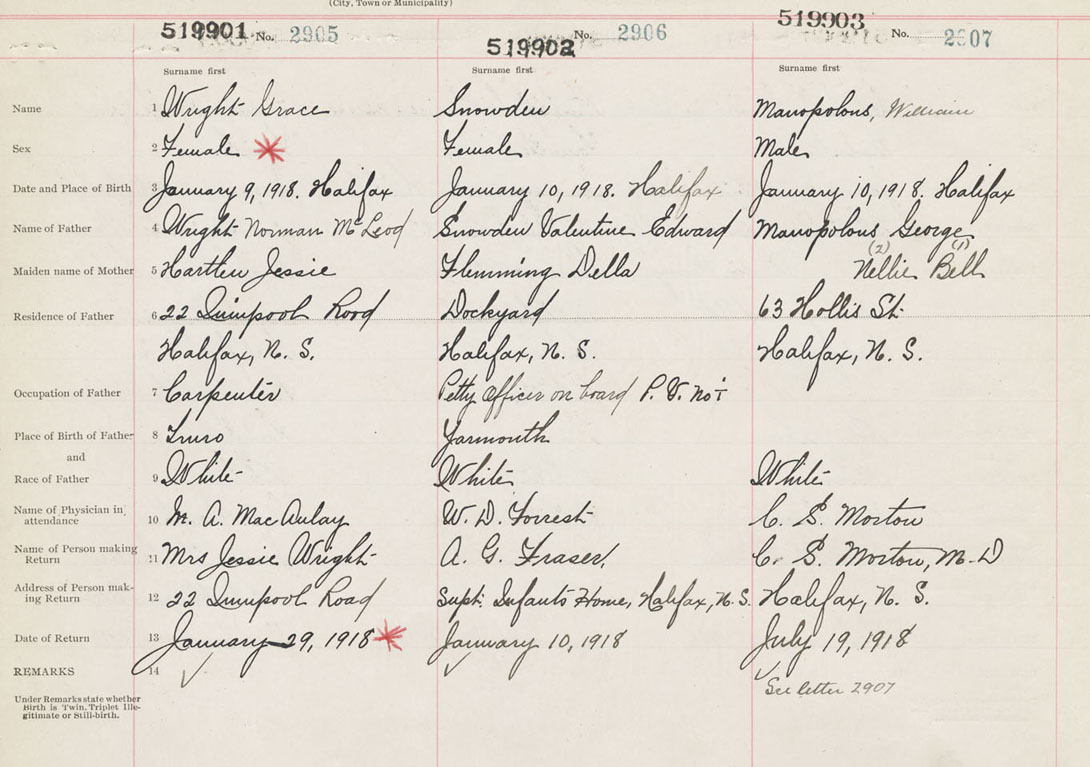 (City, Town or Municipality)
519901 No. 2905
519902 No. 2906
519903 No. 2907
Surname first Surname first Surname first
Name 1 Wright Grace Snowden Manopolous, William
Sex 2 Female Female Male
Date and Place of Birth 3 January 9, 1918. Halifax January 10, 1918. Halifax January 10, 1918. Halifax
Name of Father 4 Wright Norman McLeod Snowden Valentine Edward Manopolous George
(2) (1)
Maiden name of Mother 5 Hartlen Jessie Flemming Della Nellie Bell
Residence of Father 6 22 Quinpool Road Dockyard 63 Hollis St.
Halifax, N. S. Halifax, N. S. Halifax, N. S.
Occupation of Father 7 Carpenter Petty Officer on board P. V. No 1
Place of Birth of Father 8 Truro Yarmouth
and
Race of Father 9 White White White
Name of Physician in attendance 10 M. A. MacAulay W. D. Forrest C. S. Morton
Name of Person making Return 11 Mrs Jessie Wright A. G. Fraser, C. S. Morton, M.D
Address of Person mak-
ing Return 12 22 Quinpool Road Supt. Infants Home, Halifax, N.S. Halifax, N. S.
Date of Return 13 January 29, 1918 January 10, 1918 July 19, 1918
REMARKS 14
See letter 2907
Under Remarks state whether
Birth is Twin, Triplet Ille-
gitimate or Still-birth.